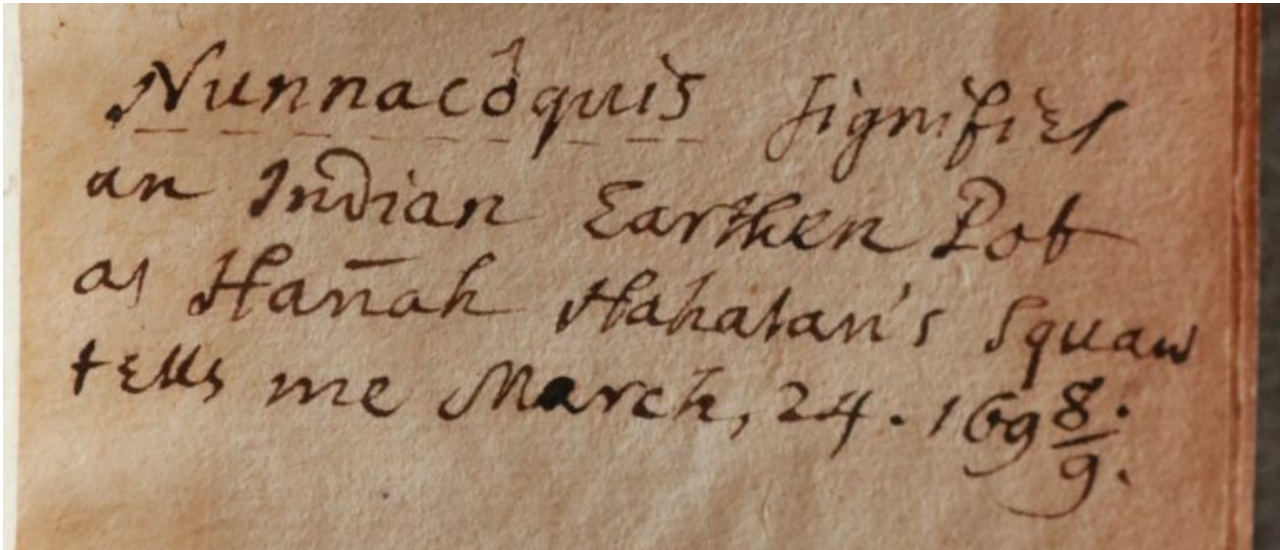 Nunnacôquis ſignifies
an Indian Earthen Pot
as Han̄ah Hahatan's Squaw
tells me March, 24. 169 8/9.